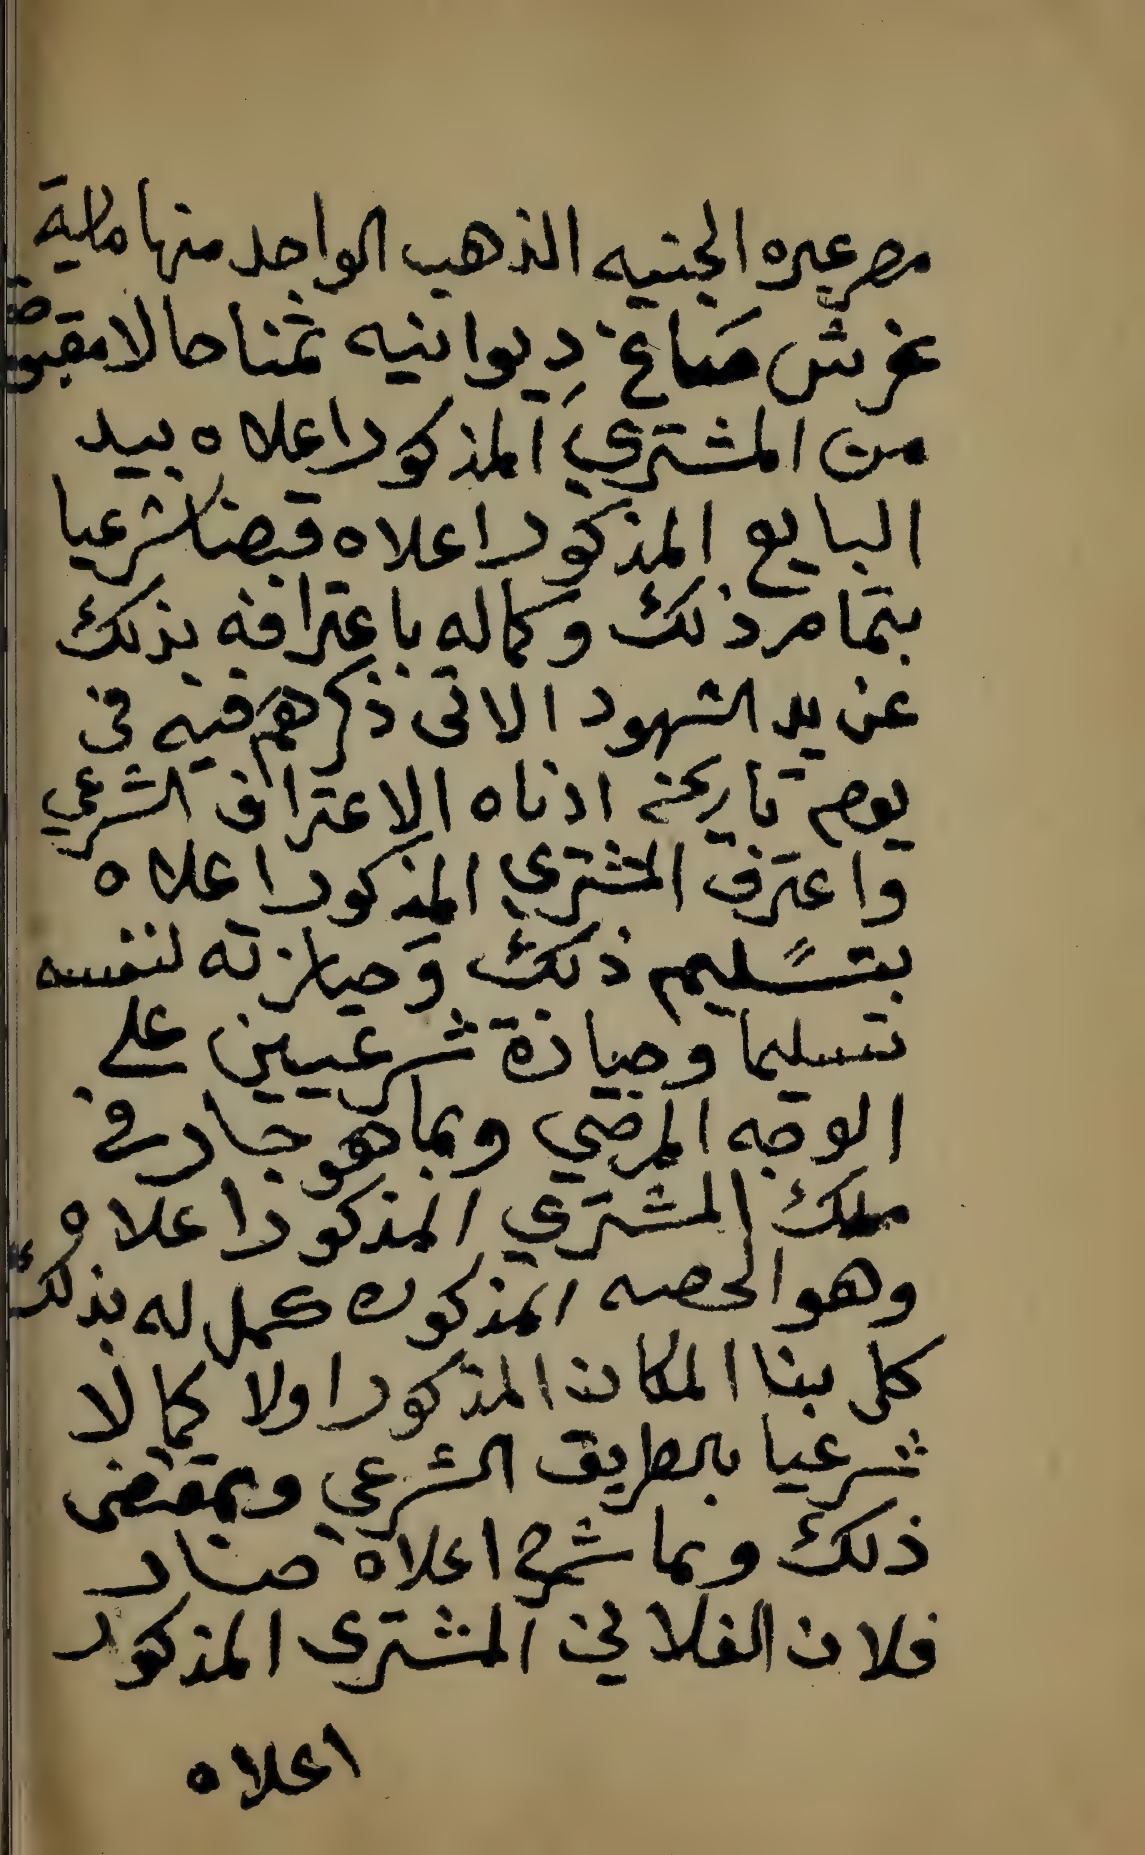 مصرعيره الجنيه الذهب الواحد منها ماية
غرش صاغ ديوانيه ثمنا حالا مقبوضه
من المشتري المذكور اعلاه بيد
البايع المذكور اعلاه قبضا شرعيا
بتمام ذلك وكماله باعترافه بذلك
عن يد الشهود الاتى ذكرهم فيه في
يوم تاريخه ادناه الاعتراف الشرعي
واعترف المشتري المذكور اعلاه
بتسليم ذلك وحيازته لنفسه
تسليما وحيازة شرعيين على
الوجه المرضي وبما هو جار في
ملك المشتري المذكور اعلاه
وهو الحصه المذكوره كمل له بذلك
كل بنا المكان المذكور اولا كمالا
شرعيا بالطريق الشرعي وبمقتضى
ذلك وبما شرح اعلاه صار
فلان الفلاني المشترى المذكور
اعلاه